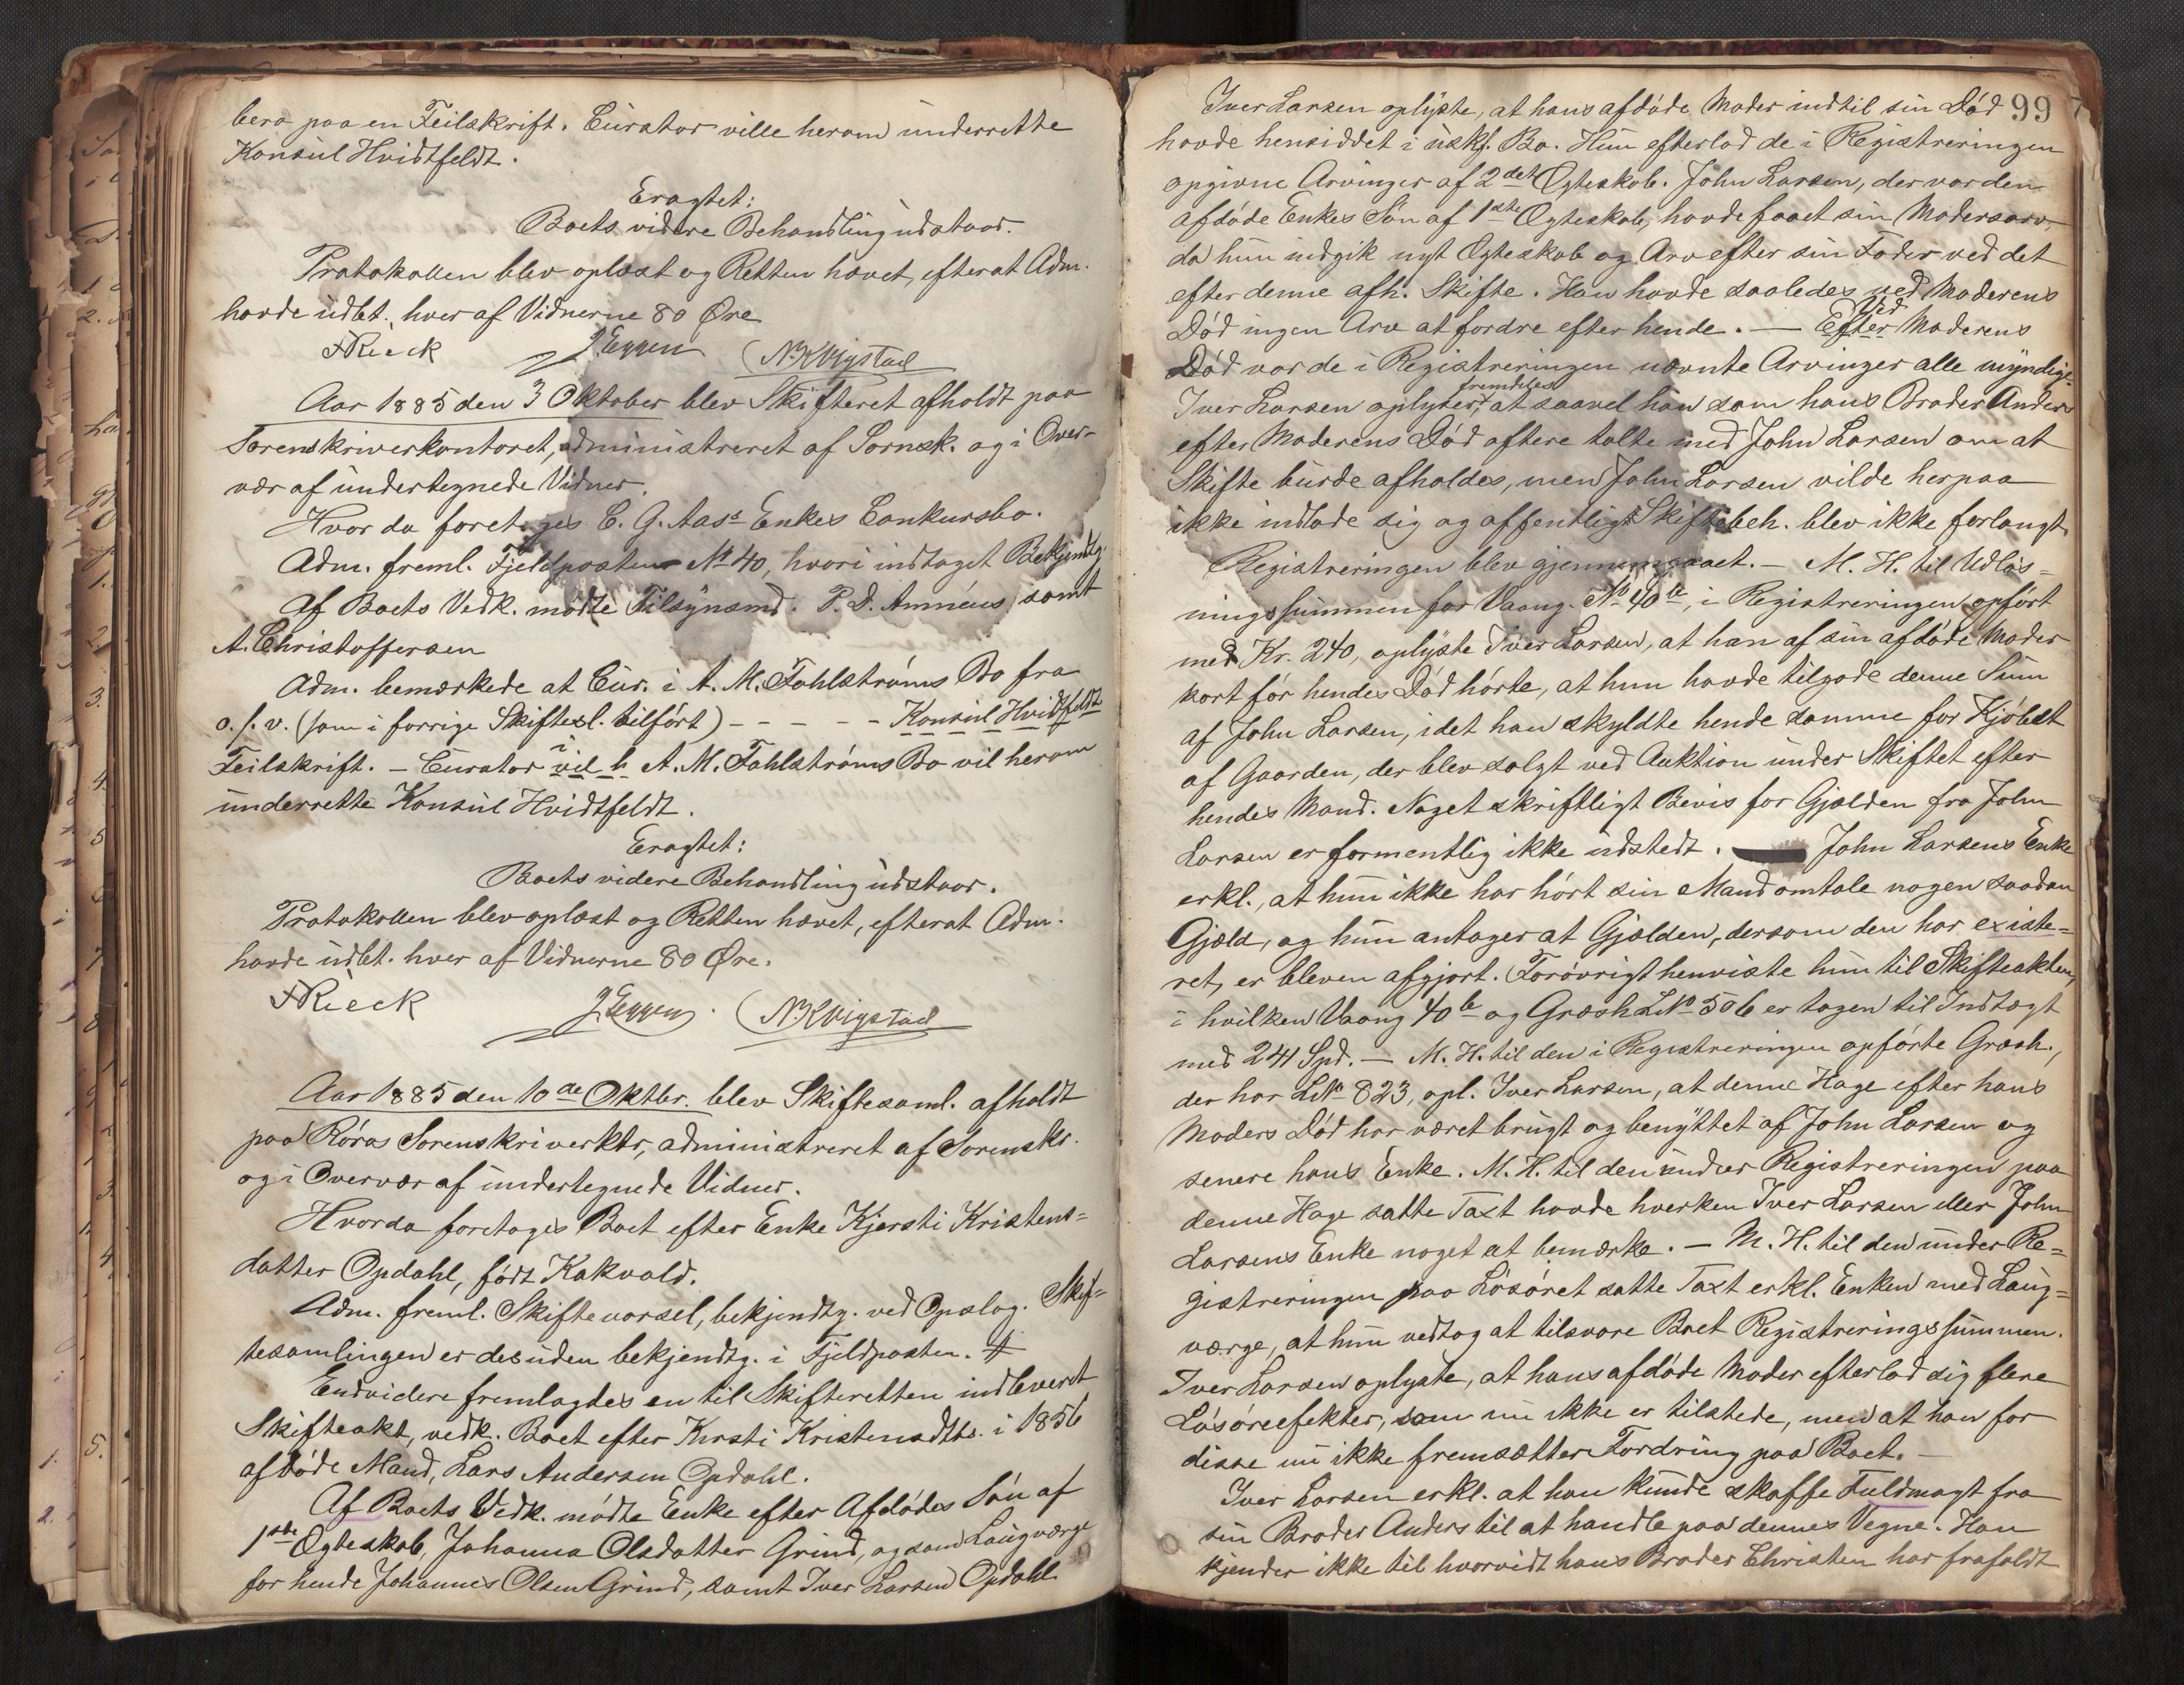 bero paa en Feilskrift. Curator ville herom underrette
Konsul Hvidtfeldt.
Eragtet:
Boets videre Behandling udstaar.
Protokollen blev oplæst og Retten hævet, efterat Adm.
havde udbt. hver af Vidnerne 80 Øre
FRieck J. Eggen N. Kvigstad
Aar 1885 den 3 Oktober blev Skifteret afholdt paa
Sorenskriverkontoret, administreret af Sornsk. og i Over-
vær af undertegnede Vidner.
Hvor da foretoges C. G. Aass Enkes Conkursbo.
Adm. freml. Fjeldposten No 40, hvori indtaget Bekjendtg.
Af Boets Vedk. mødte Tilsynsmd. P. D. Amnéus, samt
A. Christoffersen
Adm. bemærkede at Cur. i A. M. Fahlstrøms Bo fra
o. s. v. (som i forrige Skiftesl. tilført) - - - - - Konsul Hvidtfeldt
Feilskrift. - Curator vil h i A. M. Fahlstrøms Bo vil herom
underrette Konsul Hvidtfeldt.
Eragtet:
Boets videre Behandling udstaar.
Protokollen blev oplæst og Retten hævet, efterat Adm.
havde udbt. hver af Vidnerne 80 Øre.
FRieck J. Eggen. N. Kvigstad
Aar 1885 den 10de Oktbr. blev Skiftesaml. afholdt
paa Røros Sorenskriverktr, administreret af Sorenskr.
og i Overvær af undertegnede Vidner.
Hvorda foretoges Boet efter Enke Kjersti Kristens=
datter Opdahl, født Kokvold.
Adm. freml. Skiftevarsel, bekjendtg. ved Opslag. Skif=
tesamlingen er desuden bekjendtg. i Fjeldposten. #
Endvidere fremlagdes en til Skifteretten indleveret
Skifteakt, vedk. Boet efter Kirsti Kristensdtts. i 1856
afdøde Mand, Lars Andersen Opdahl.
Af Boets Vedk. mødte Enke efter Afdødes Søn af
1ste Ægteskab, Johanna Olsdatter Grind, og som Laugværge
for hende Johannes Olsen Grind, samt Iver Larsen Opdahl.
99
Iver Larsen oplyste, at hans afdøde Moder indtil sin Død
havde hensiddet i uskf. Bo. Hun efterlod de i Registreringen
opgivne Arvinger af 2det Ægteskab. John Larsen, der var den
afdøde Enkes Søn af 1ste Ægteskab, havde faaet sin Modersarv,
da hun indgik nyt Ægteskab og Arv efter sin Fader ved det
efter denne afh. Skifte. Han havde saaledes ved Moderens
Død ingen Arv at fordre efter hende. — Efter Ved Moderens
Død var de i Registreringen nævnte Arvinger alle myndige.
Iver Larsen oplyser fremdeles, at saavel han som hans Broder Anders
efter Moderens Død oftere talte med John Larsen om at
Skifte burde afholdes, men John Larsen vilde herpaa
ikke indlade sig og offentligt Skiftebeh. blev ikke forlangt.
Registreringen blev gjennemgaaet. — M. H. til Udløs=
ningssummen for Vaang. No 40b, i Registreringen opført
med Kr. 240, oplyste Iver Larsen, at han af sin afdøde Moder
kort før hendes Død hørte, at hun havde tilgode denne Sum
af John Larsen, idet han skyldte hende samme for Kjøbet
af Gaarden, der blev solgt ved Auktion under Skiftet efter
hendes Mand. Noget skriftligt Bevis for Gjælden fra John
Larsen er formentlig ikke udstedt. John Larsens Enke
erkl., at hun ikke har hørt sin Mand omtale nogen saadan
Gjæld, og hun antager at Gjælden, dersom den har existe=
ret, er bleven afgjort. Forøvrigt henviste hun til Skifteakten,
i hvilken Vaang 40b og Græsh LNo 506 er tagen til Indtægt
med 241 Spd. — M. H. til den i Registreringen opførte Græsh.,
der har LNo 823, opl. Iver Larsen, at denne Hage efter hans
Moders Død har været brugt og benyttet af John Larsen og
senere hans Enke. M. H. til den under Registreringen paa
denne Hage satte Taxt havde hverken Iver Larsen eller John
Larsens Enke noget at bemærke. — M. H. til den under Re=
gistreringen paa Løsøret satte Taxt erkl. Enken med Laug=
værge, at hun vedtog at tilsvare Boet Registreringssummen.
Iver Larsen oplyste, at hans afdøde Moder efterlod sig flere
Løsøreefekter, som nu ikke er tilstede, men at han for
disse nu ikke fremsætter Fordring paa Boet. —
Iver Larsen erkl. at han kunde skaffe Fuldmagt fra
sin Broder Anders til at handle paa dennes Vegne. Han
kjender ikke til hvorvidt hans Broder Christen har frafaldt